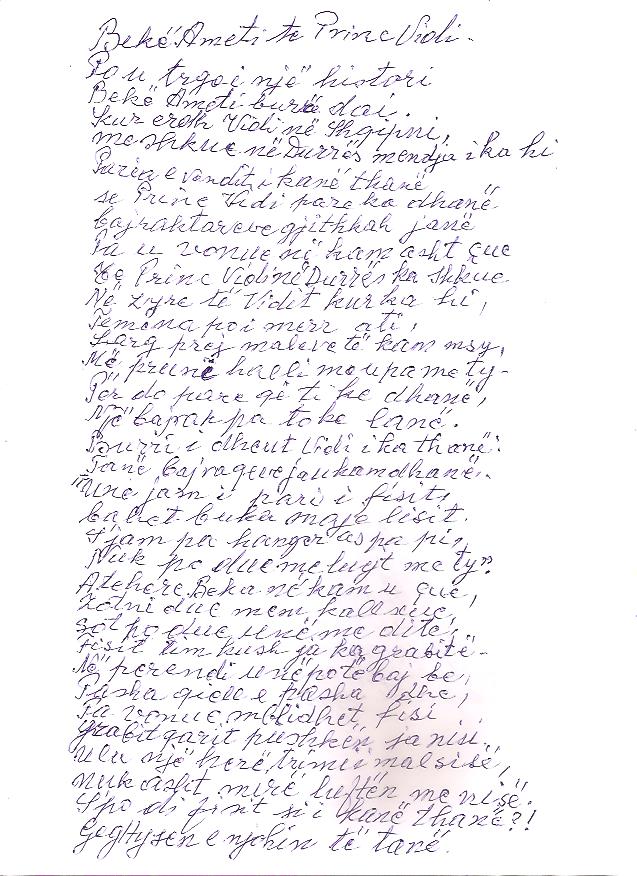 Bekë Ameti te Princ Vidi -
Po u tregoj një histori
Bekë Ameti burrë dai.
Kur erdh Vidi në Shqipni,
me shkue në Durrës mendja i ka hi
Paria e vendit i kanë thanë
se Princ Vidi pare ka dhanë
bajraktareve gjithkah janë
Pa u vonue në kam asht çue
te Princ Vidi në Durrës ka shkue
Në zyre të Vidit kur ka hi,
Temena poi merr ati,
Larg prej maleve të kam msy,
Më prunë halli mou pa me ty -
Për do pare që ti ke dhanë,
Një bajrak pa to ke lanë.
Burri i dheut Vidi i ka thanë:
Tanë bajraqeve jau kam dhanë.
"Unë jam i pari i fisit,
bahet buka maje lisit.
S'jam pa hanger as pa pi,
Nuk po due me lugt me ty".
Atehere Beka në kam u çue,
Zotni due mem kallxue,
sot po due unë me ditë,
fisit tim kush ja ka grabitë -
Në perendi unë po të baj be,
Pasha qiell e pasha dhe,
Pa vonue mblidhet fisi
grabitqarit pushkën ja nisi.
Ulu një herë, trimi i malsisë,
nuk asht mirë luftën me nisë.
S'po di fisit si i kanë thanë?!
GegHysen e njohin të tanë.